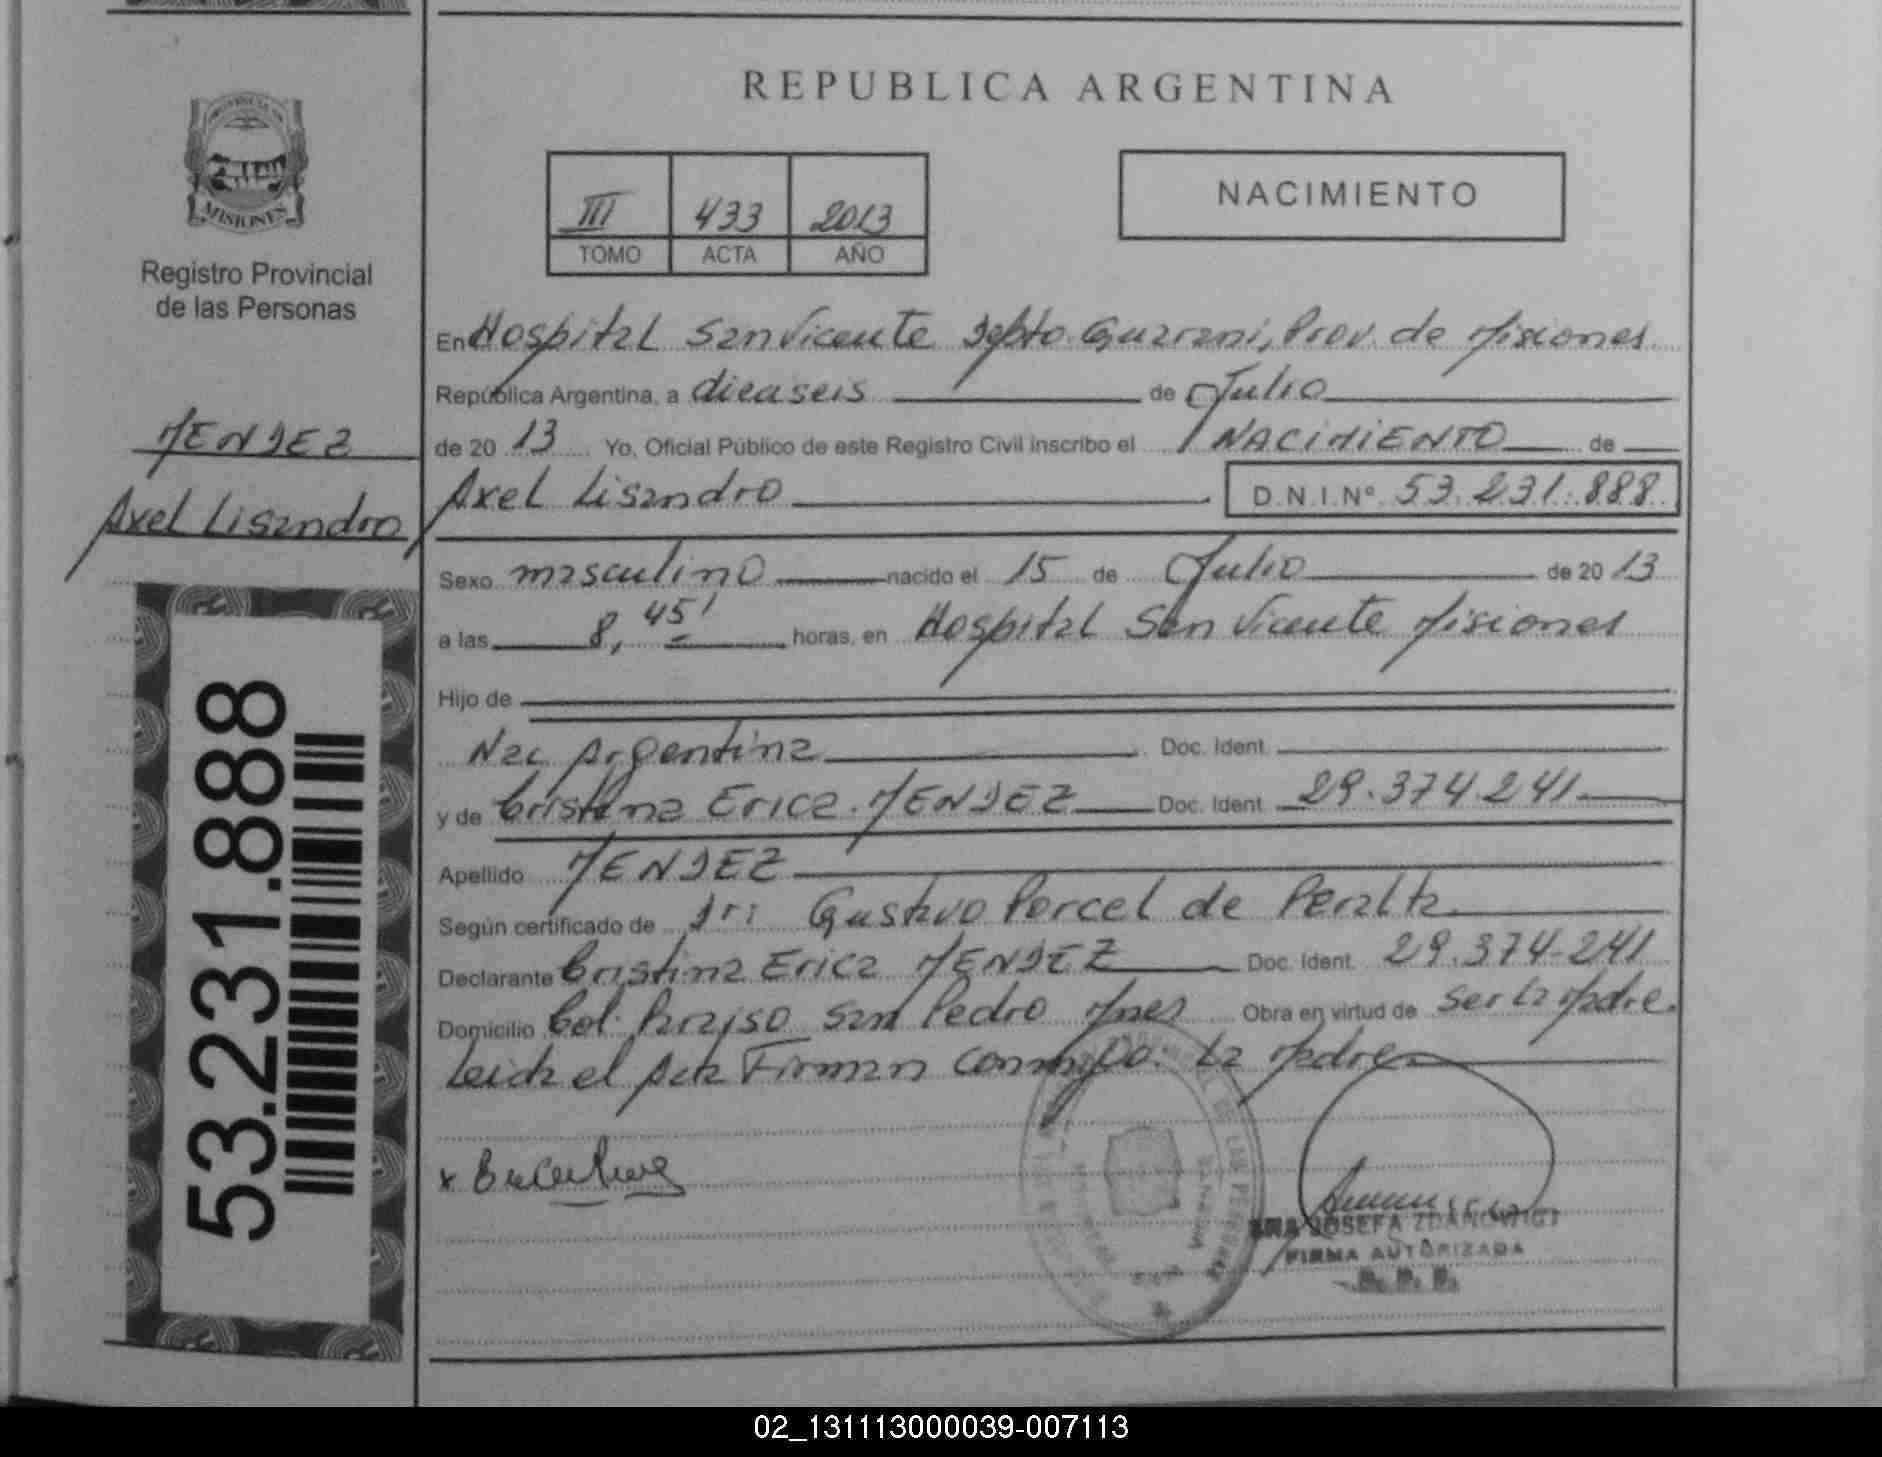 REPUBLICA ARGENTINA
PROVINCIA DE
MISIONES
Registro Provincial
de las Personas
III 433 2013
TOMO ACTA AÑO
NACIMIENTO
MENDEZ
Axel Lisandro
53.231.888
En Hospital San Vicente Depto. Guarani, Prov. de Misiones
República Argentina, a dieaseis de Julio
de 20 13 Yo, Oficial Público de este Registro Civil inscribo el NACIMIENTO de
Axel Lisandro D.N.I.Nº 53.231.888
Sexo masculino nacido el 15 de Julio de 20 13
a las 8, 45' horas, en Hospital San Vicente Misiones
Hijo de
Nac Argentina Doc. Ident.
y de Cristina Erica MENDEZ Doc. Ident. 29.374.241
Apellido MENDEZ
Según certificado de Dr: Gustavo Porcel de Peralta
Declarante Cristina Erica MENDEZ Doc. Ident. 29.374.241
Domicilio Col. Paraiso San Pedro Mnes Obra en virtud de ser la Madre.
Leida el Acta Firman conmigo: La Madre
x
ANA JOSEFA ZDANOWICZ
FIRMA AUTORIZADA
R. P. P.
02_131113000039-007113